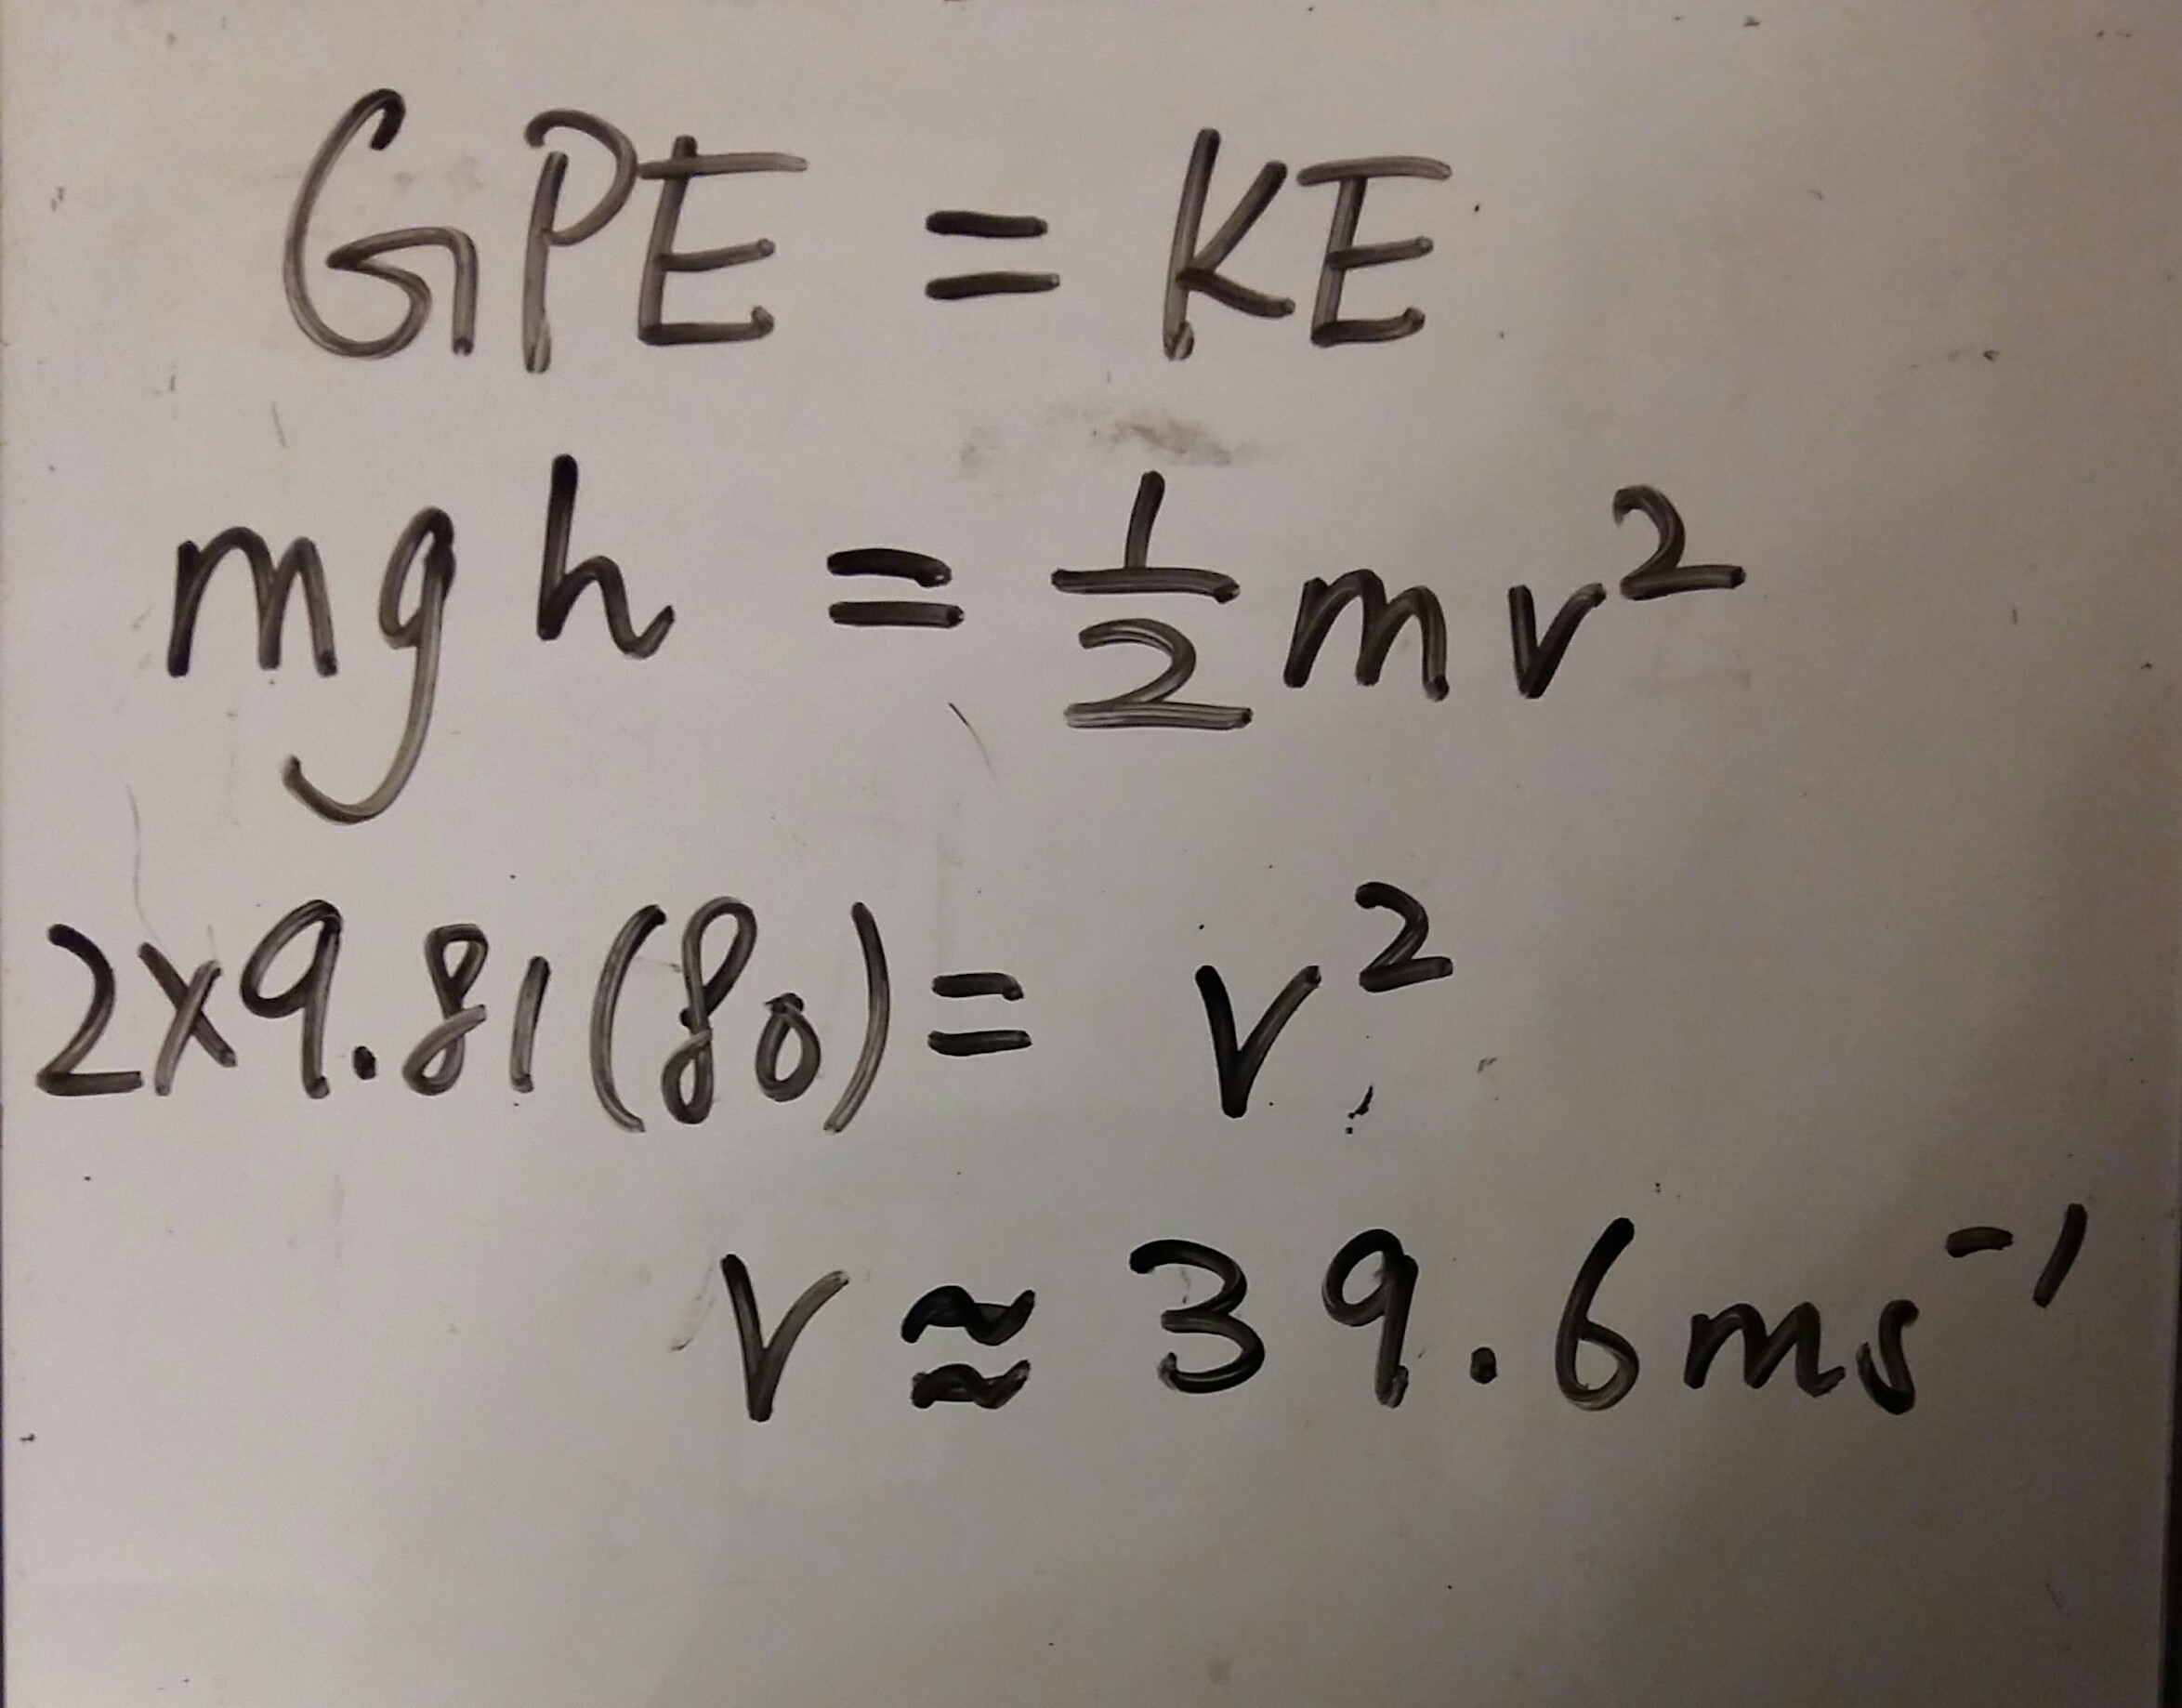 GPE = KE
mgh = ½mv²
2×9.81(80) = v²
v ≈ 39.6 ms⁻¹